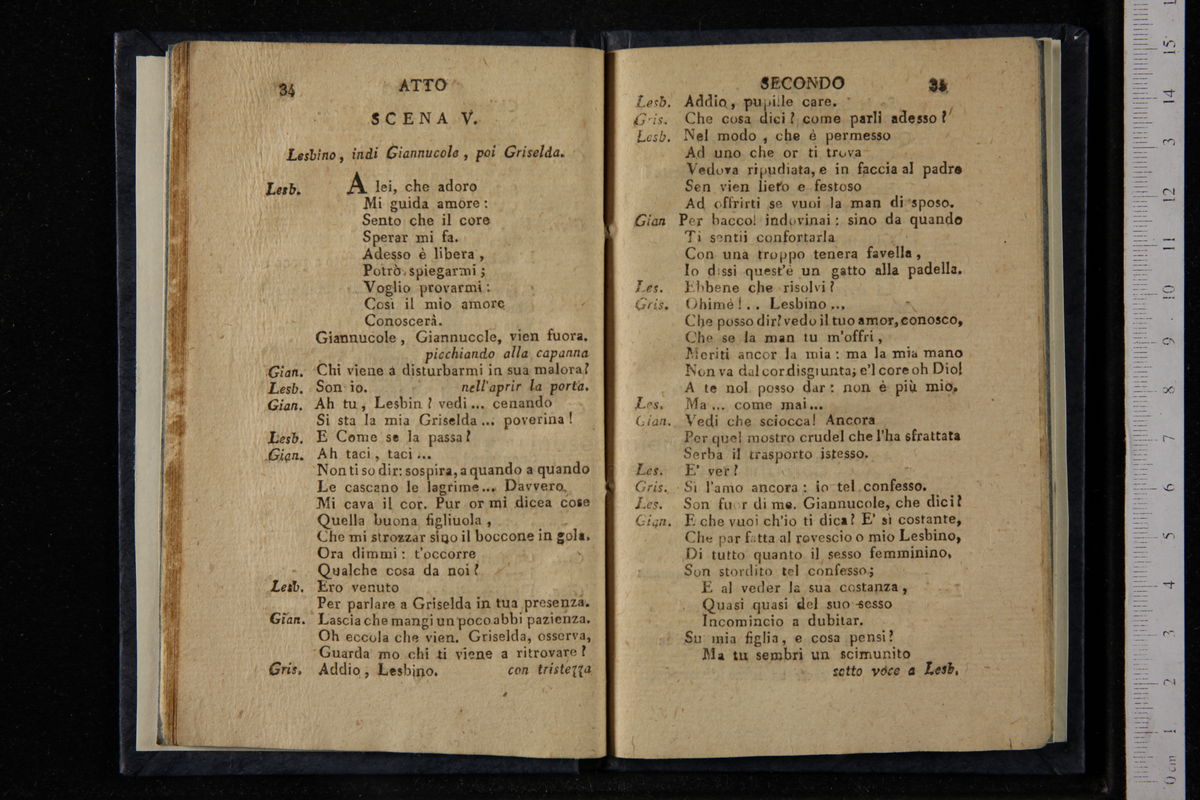 34 ATTO
SCENA V.
Lesbino, indi Giannucole, poi Griselda.
Lesb. A lei, che adoro
Mi guida amore:
Sento che il core
Sperar mi fa.
Adesso è libera,
Potrò spiegarmi;
Voglio provarmi:
Così il mio amore
Conoscerà.
Giannucole, Giannuccle, vien fuora.
picchiando alla capanna
Gian. Chi viene a disturbarmi in sua malora?
Lesb. Son io. nell'aprir la porta.
Gian. Ah tu, Lesbin? vedi... cenando
Si sta la mia Griselda... poverina!
Lesb. E Come se la passa?
Gian. Ah taci, taci...
Non ti so dir: sospira, a quando a quando
Le cascano le lagrime... Davvero
Mi cava il cor. Pur or mi dicea cose
Quella buona figliuola,
Che mi strozzar sino il boccone in gola.
Ora dimmi: t'occorre
Qualche cosa da noi?
Lesb. Ero venuto
Per parlare a Griselda in tua presenza.
Gian. Lascia che mangi un poco abbi pazienza.
Oh eccola che vien. Griselda, osserva,
Guarda mo chi ti viene a ritrovare?
Gris. Addio, Lesbino. con tristezza
SECONDO 35
Lesb. Addio, pupille care.
Gris. Che cosa dici? come parli adesso?
Lesb. Nel modo, che è permesso
Ad uno che or ti trova
Vedova ripudiata, e in faccia al padre
Sen vien lieto e festoso
Ad offrirti se vuoi la man di sposo.
Gian Per bacco! indovinai: sino da quando
Ti sentii confortarla
Con una troppo tenera favella,
Io dissi quest'è un gatto alla padella.
Les. Ebbene che risolvi?
Gris. Ohimé!.. Lesbino...
Che posso dir? vedo il tuo amor, conosco,
Che se la man tu m'offri,
Meriti ancor la mia: ma la mia mano
Non va dal cor disgiunta; e'l core oh Dio!
A te nol posso dar: non è più mio.
Les. Ma... come mai...
Gian. Vedi che sciocca! Ancora
Per quel mostro crudel che l'ha sfrattata
Serba il trasporto istesso.
Les. E' ver?
Gris. Sì l'amo ancora: io tel confesso.
Les. Son fuor di me. Giannucole, che dici?
Gian. E che vuoi ch'io ti dica? E' sì costante,
Che par fatta al rovescio o mio Lesbino,
Di tutto quanto il sesso femminino,
Son stordito tel confesso;
E al veder la sua costanza,
Quasi quasi del suo sesso
Incomincio a dubitar.
Su mia figlia, e cosa pensi?
Ma tu sembri un scimunito
sotto voce a Lesb.